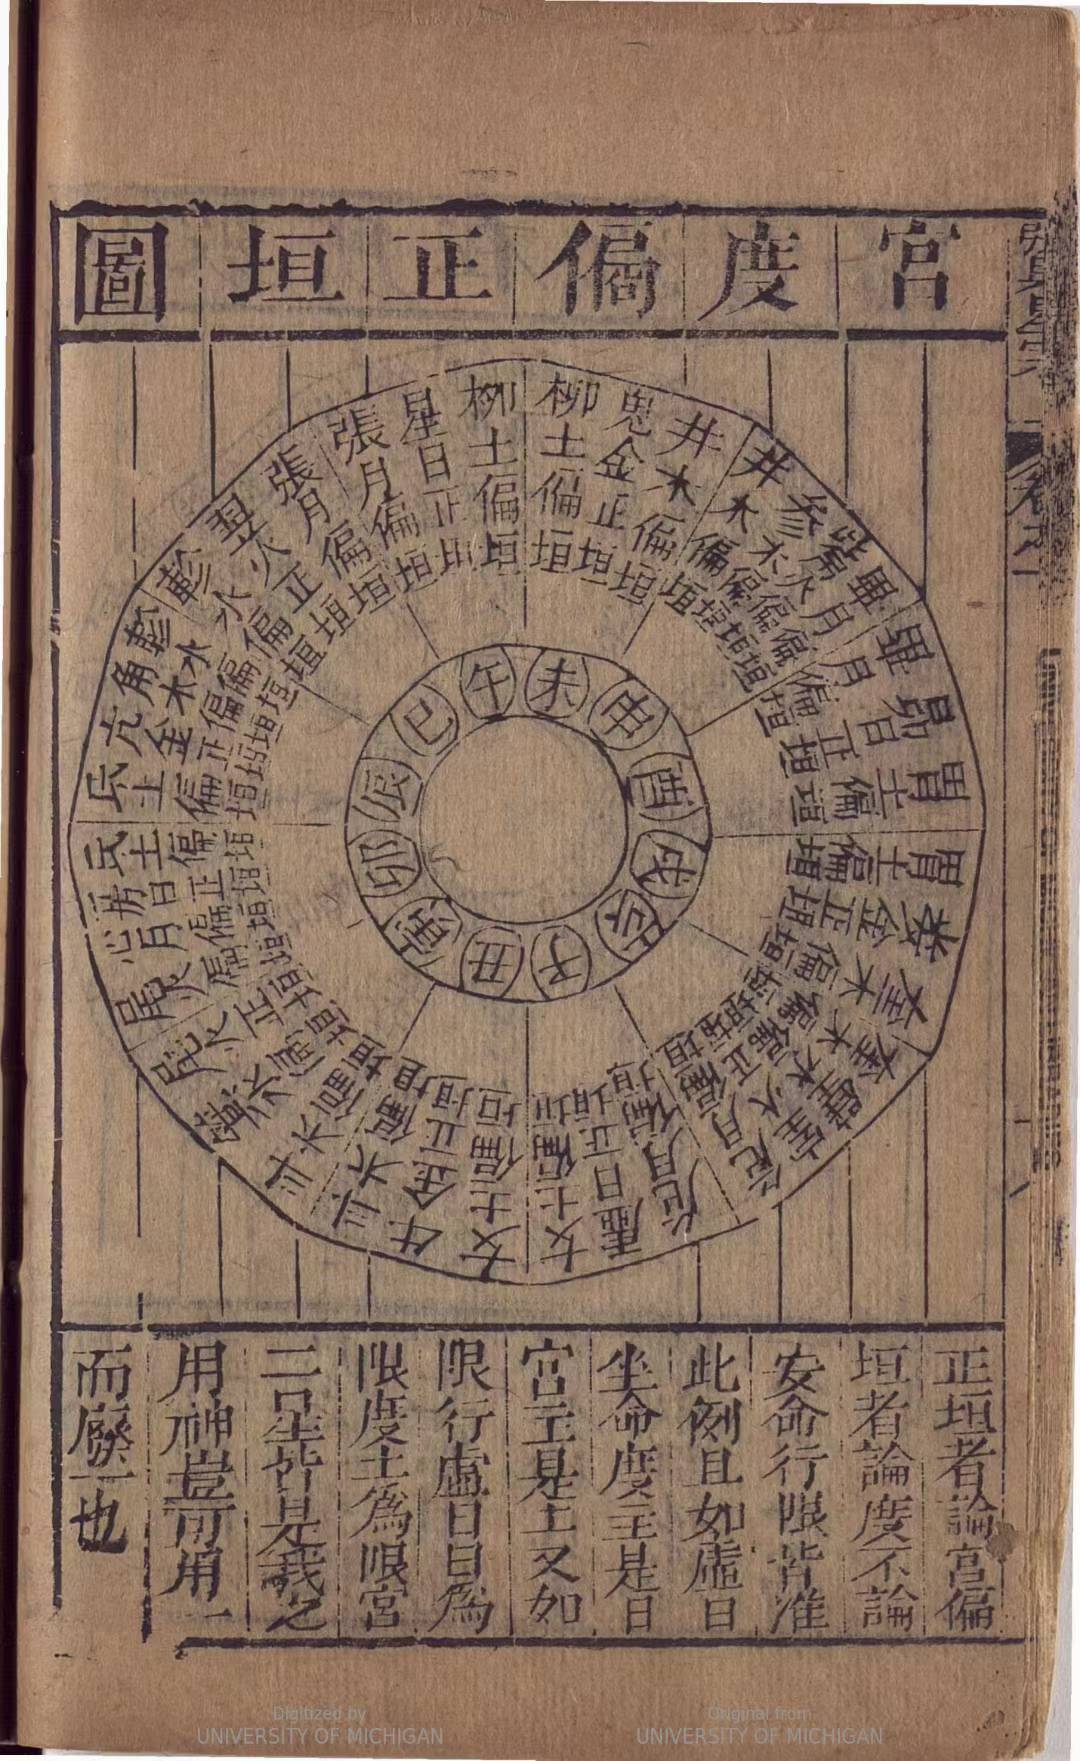 宮度偏正垣圖
柳土偏垣
鬼金正垣
井木偏垣
井木偏垣
參水偏垣
觜火偏垣
畢月偏垣
畢月偏垣
昴日正垣
胃土偏垣
胃土偏垣
婁金正垣
奎木偏垣
奎木偏垣
壁水偏垣
室火正垣
危月偏垣
危月偏垣
虛日正垣
女土偏垣
女土偏垣
牛金正垣
斗木偏垣
斗木偏垣
箕水偏垣
尾火正垣
尾火偏垣
心月偏垣
房日正垣
氐土偏垣
氐土偏垣
亢金正垣
角木偏垣
軫水偏垣
軫水偏垣
翌火正垣
張月偏垣
張月偏垣
星日正垣
柳土偏垣
未
申
酉
戌
亥
子
丑
寅
卯
辰
巳
午
正垣者論宮偏
垣者論度不論
安命行限皆准
此例且如虛日
坐命度主是日
宮主是土又如
限行虛日日為
限度土為限宮
二星皆是我之
用神豈可用一
而廢一也
Digitized by
UNIVERSITY OF MICHIGAN
Original from
UNIVERSITY OF MICHIGAN